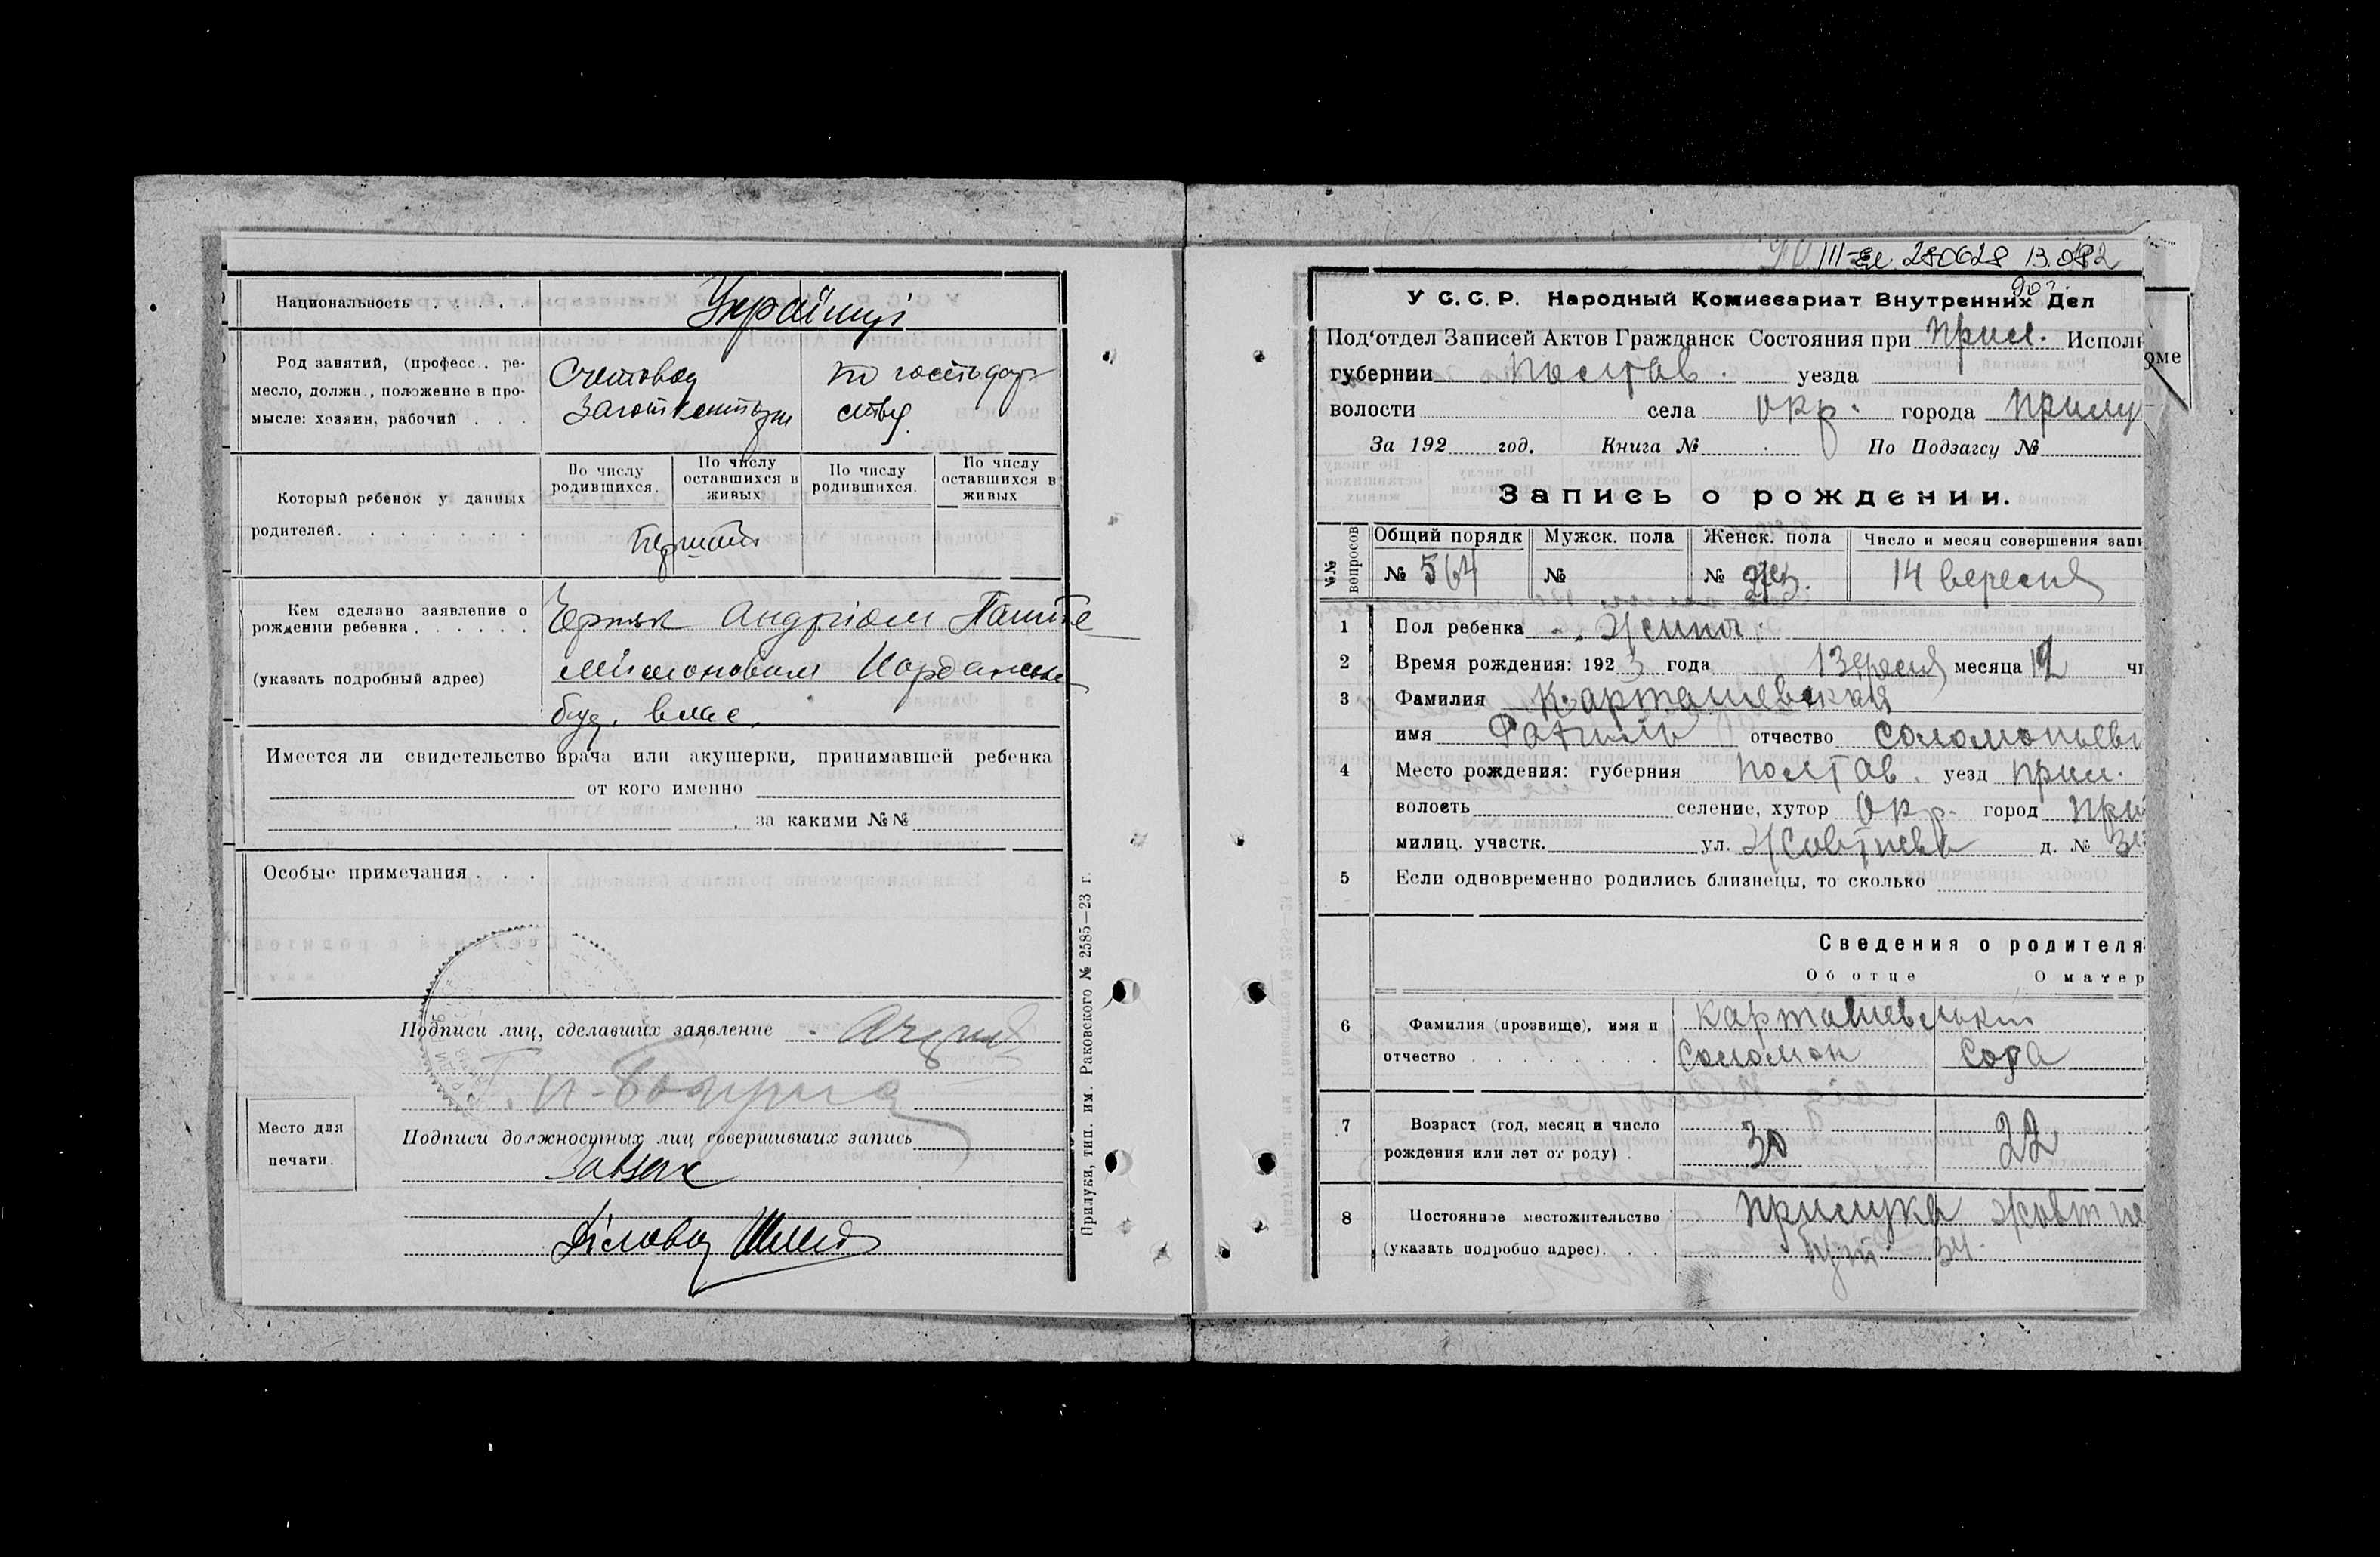 Национальность . . . . . Українці
Род занятий, (професс., ре-
месло, должн., положение в про-
мысле: хозяин, рабочий . . .
Счетовод
по господар-
ству.
Который ребенок у данных
родителей. . . . . . . .
По числу родившихся.
По числу оставшихся в живых
По числу родившихся.
По числу оставшихся в живых
Кем сделано заявление о
рождении ребенка . . . . . .
(указать подробный адрес)
буд. влас.
Имеется ли свидетельство врача или акушерки, принимавшей ребенка
от кого именно
за какими №№
Особые примечания . . .
Подписи лиц, сделавших заявление
Место для
печати.
Подписи должностных лиц совершивших запись
Завзагс
Діловод
Прилуки, тип. им. Раковского № 2585—23 г.
III-Ел. 280628 13.0
У С. С. Р. Народный Комиссариат Внутренних Дел
Под'отдел Записей Актов Гражданск Состояния при Прил. Исполк
оме
губернии Полтав. уезда
волости села окр. города Прилу
За 192 год. Книга № По Подзагсу №
Запись о рождении.
№№ вопросов
Общий порядк Мужск. пола Женск. пола Число и месяц совершения запи
№ 564 № № 14 вересня
1 Пол ребенка Жиноч.
2 Время рождения: 1923 года месяца 12 чи
3 Фамилия Карташевская
имя отчество Соломоньевн
4 Место рождения: губерния Полтав. уезд Прил.
волость селение, хутор Окр. город При
милиц. участк. ул. Жовтнева д. № 34
5 Если одновременно родились близнецы, то сколько
Сведения о родителя
Об отце О матер
6 Фамилия (прозвище), имя и Карташевський
отчество . . . . . . . . Соломон Сора
7 Возраст (год, месяц и число
рождения или лет от роду) . 30 22
8 Постоянное местожительство Прилука Жовтне
(указать подробно адрес). . . 34.